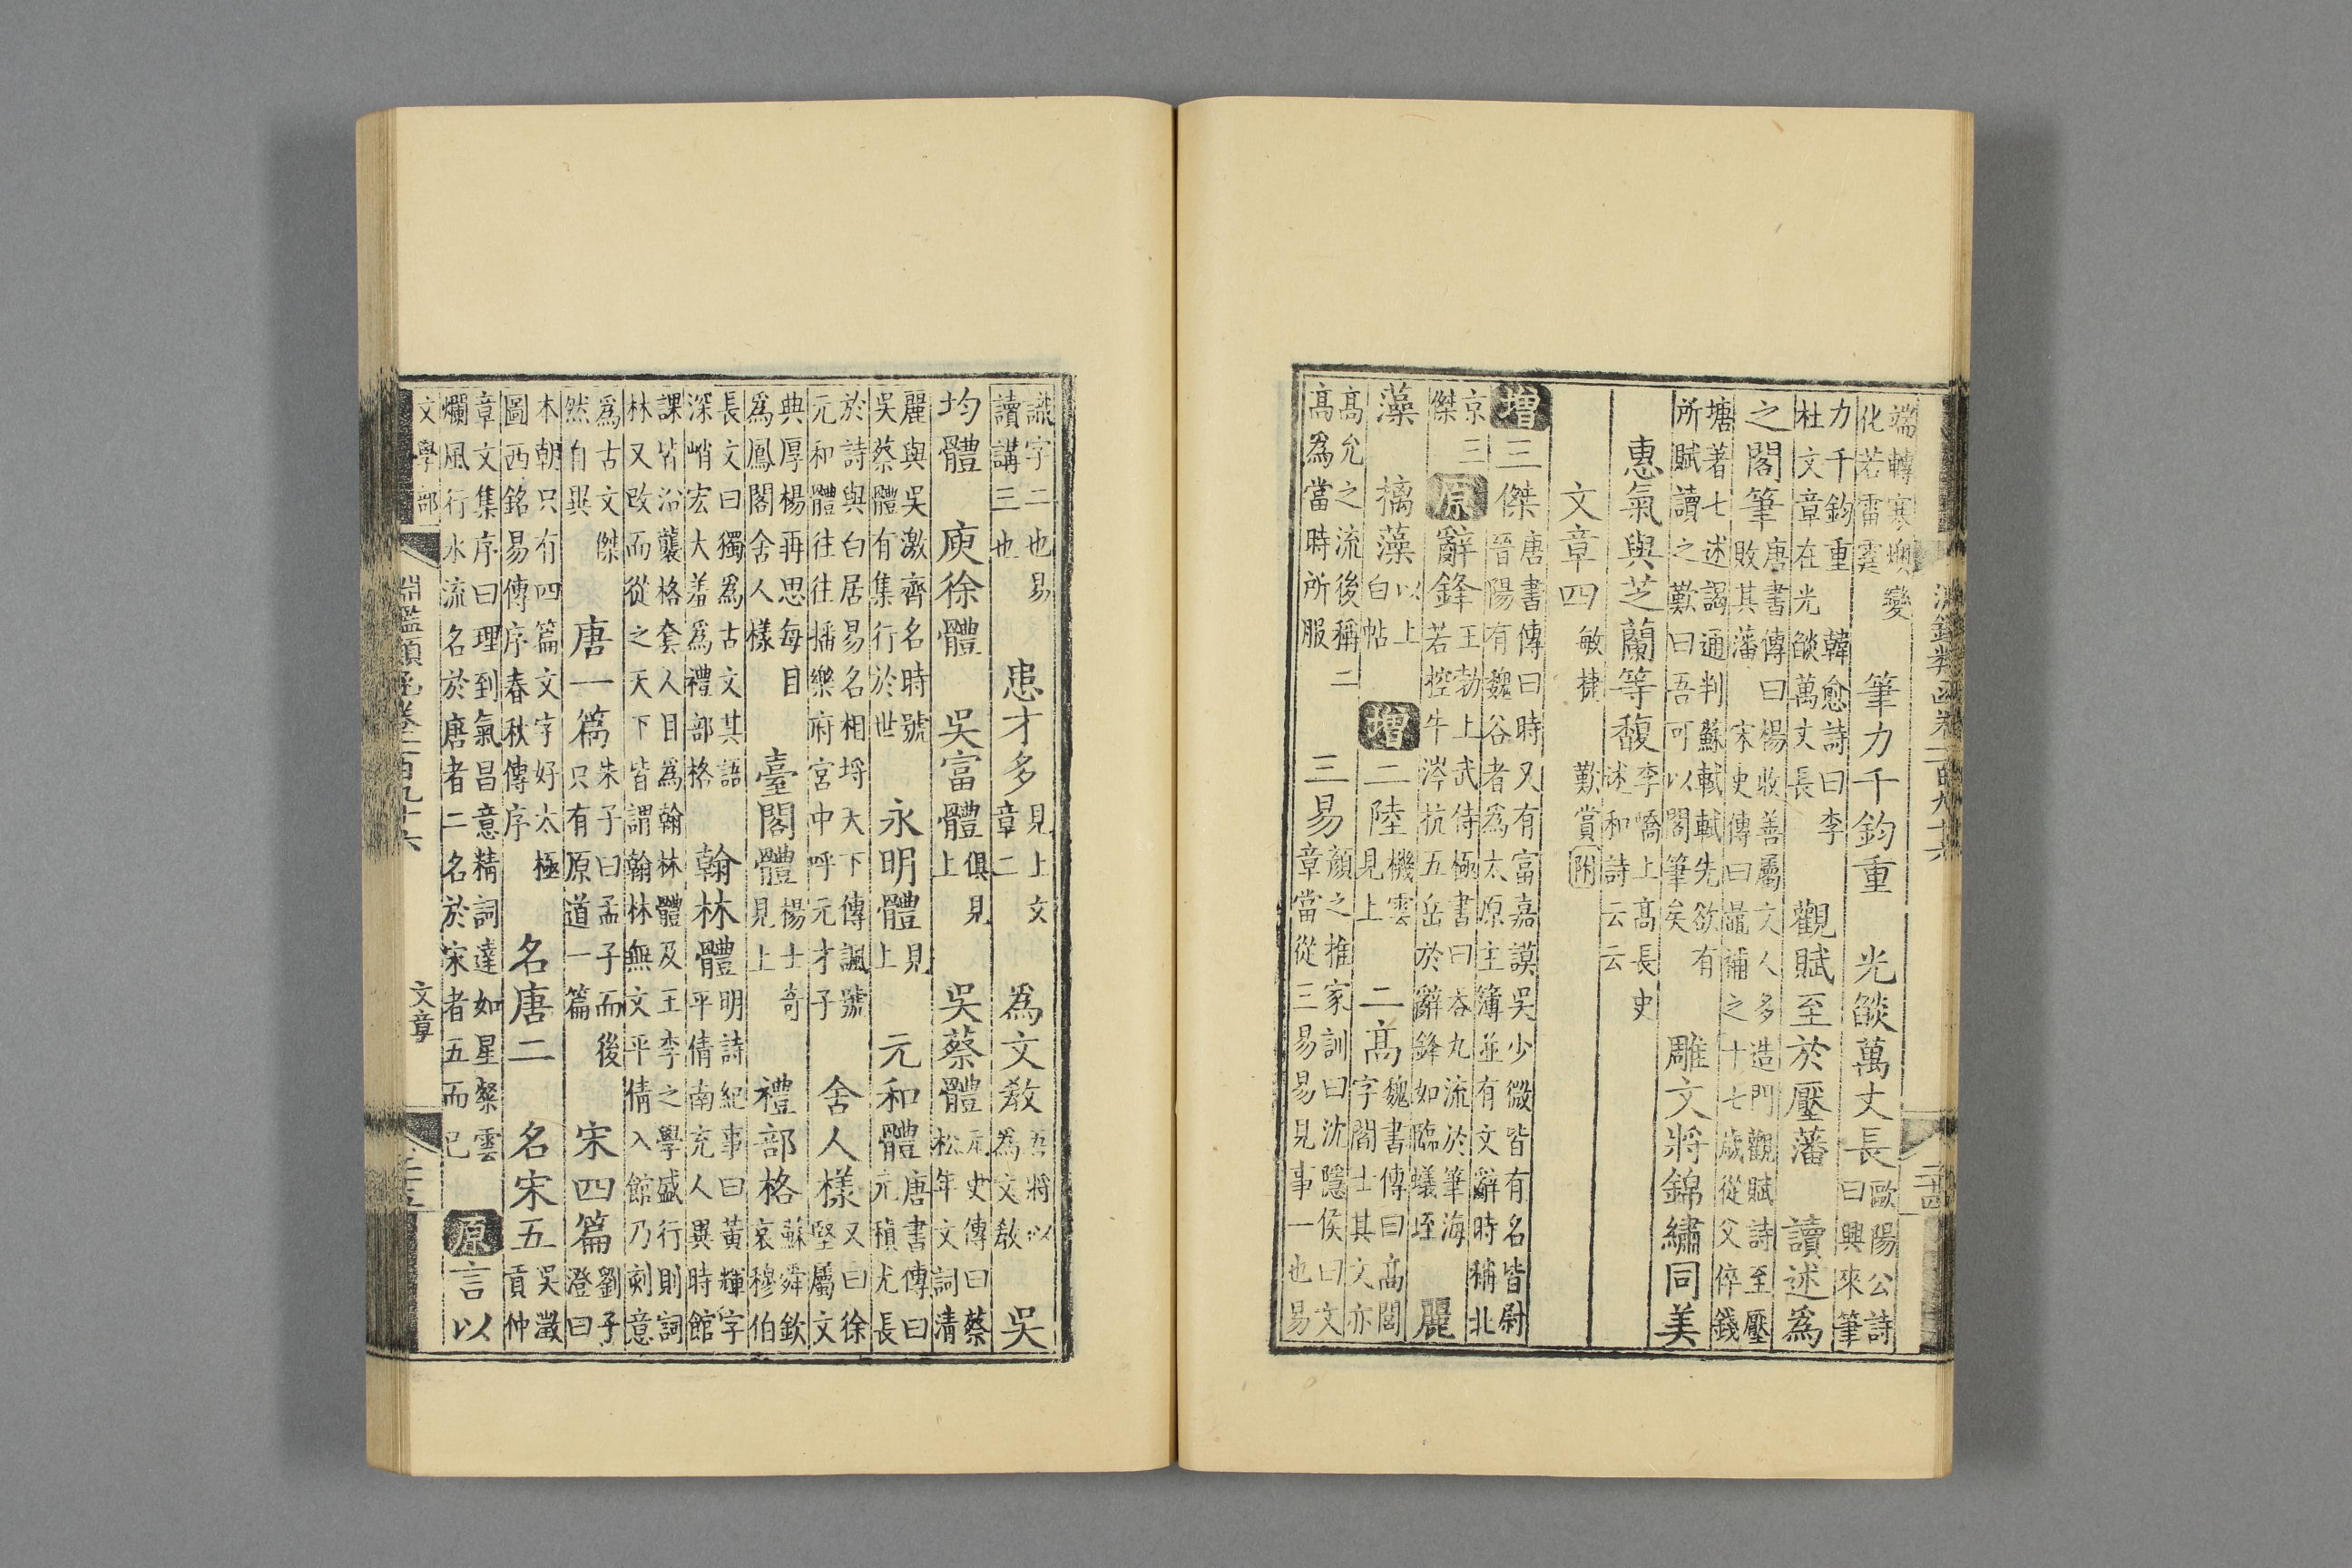 淵鑑類函卷一百九十六 二十四
端轉寒燠變化若雷霆 筆力千鈞重 光燄萬丈長 歐陽公詩曰興來筆
力千鈞重 韓愈詩曰李杜文章在光燄萬丈長 觀賦至於壓藩 讀述為
之閣筆 唐書傳曰楊收善屬文人多造門觀賦詩至壓敗其藩 宋史傳曰鼂補之十七歲從父倅錢
塘著七述謁通判蘇軾軾先欲有所賦讀之歎曰吾可以閣筆矣 雕文將錦繡同美
惠氣與芝蘭等馥 李嶠上高長史述和詩云云
文章四 敏捷 歎賞附
增 三傑 唐書傳曰時又有富嘉謨吳少微皆有名皆尉晉陽有魏谷者為太原主簿並有文辭時稱北
京三傑 原 辭鋒 王勃上武侍極書曰吞九流於筆海若控牛涔抗五岳於辭鋒如臨蟻垤 麗
藻 摛藻 以上白帖 增 二陸 機雲見上 二高 魏書傳曰高閭字閻士其文亦
高允之流後稱二高為當時所服 三易 顏之推家訓曰沈隱侯曰文章當從三易易見事一也易
識字二也易讀講三也 患才多 見上文章二 為文敎 吾將以為文敎 吳
均體 庾徐體 吳富體 俱見上 吳蔡體 元史傳曰蔡松年文詞清
麗與吳激齊名時號吳蔡體有集行於世 永明體 見上 元和體 唐書傳曰元稹尤長
於詩與白居易名相埒天下傳諷號元和體往往播樂府宮中呼元才子 舍人樣 又曰徐堅屬文
典厚楊再思每目為鳳閣舍人樣 臺閣體 楊士奇見上 禮部格 蘇舜欽哀穆伯
長文曰獨為古文其語深峭宏大羞為禮部格 翰林體 明詩紀事曰黃輝字平倩南充人異時館
課皆沿襲格套人目為翰林體及王李之學盛行則詞林又改而從之天下皆謂翰林無文平倩入館乃刻意
為古文傑然自異 唐一篇 朱子曰孟子而後只有原道一篇 宋四篇 劉子澄曰
本朝只有四篇文字好太極圖西銘易傳序春秋傳序 名唐二 名宋五 吳澂貢仲
章文集序曰理到氣昌意精詞達如星粲雲爛風行水流名於唐者二名於宋者五而已 原 言以
文學部 淵鑑類函卷一百九十六 文章 二十五